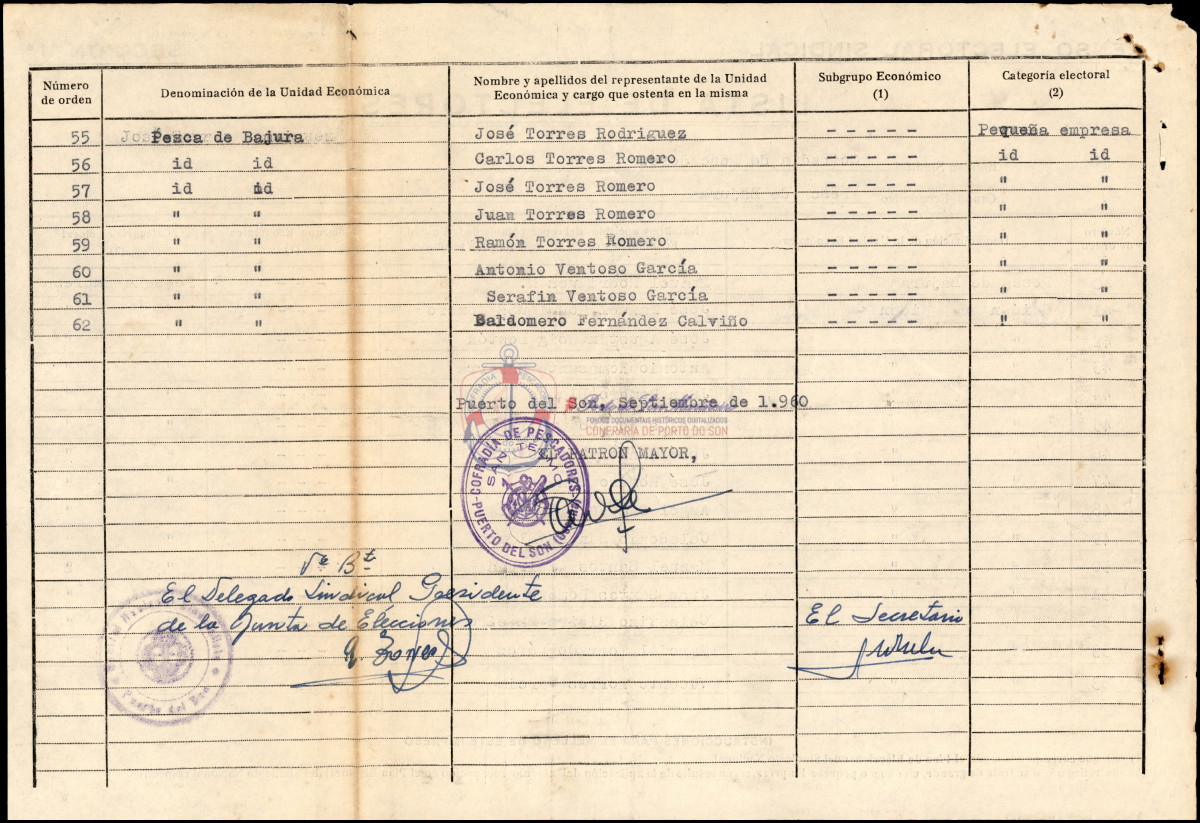 Número de orden
Denominación de la Unidad Económica
Nombre y apellidos del representante de la Unidad Económica y cargo que ostenta en la misma
Subgrupo Económico (1)
Categoría electoral (2)
55 Pesca de Bajura José Torres Rodriguez - - - - - Pequeña empresa
56 id id Carlos Torres Romero - - - - - id id
57 id id José Torres Romero - - - - - " "
58 " " Juan Torres Romero - - - - - " "
59 " " Ramón Torres Romero - - - - - " "
60 " " Antonio Ventoso García - - - - - " "
61 " " Serafin Ventoso García - - - - - " "
62 " " Baldomero Fernández Calviño - - - - - " "
Puerto del Son, Septiembre de 1.960
FONDOS DOCUMENTAIS HISTÓRICOS DIXITALIZADOS
CONFRARÍA DE PORTO DO SON
EL PATRON MAYOR,
COFRADIA DE PESCADORES
SAN TELMO
PUERTO DEL SON
Vº Bº
El Delegado Sindical Presidente
de la Junta de Elecciones
El Secretario
Puerto del Son